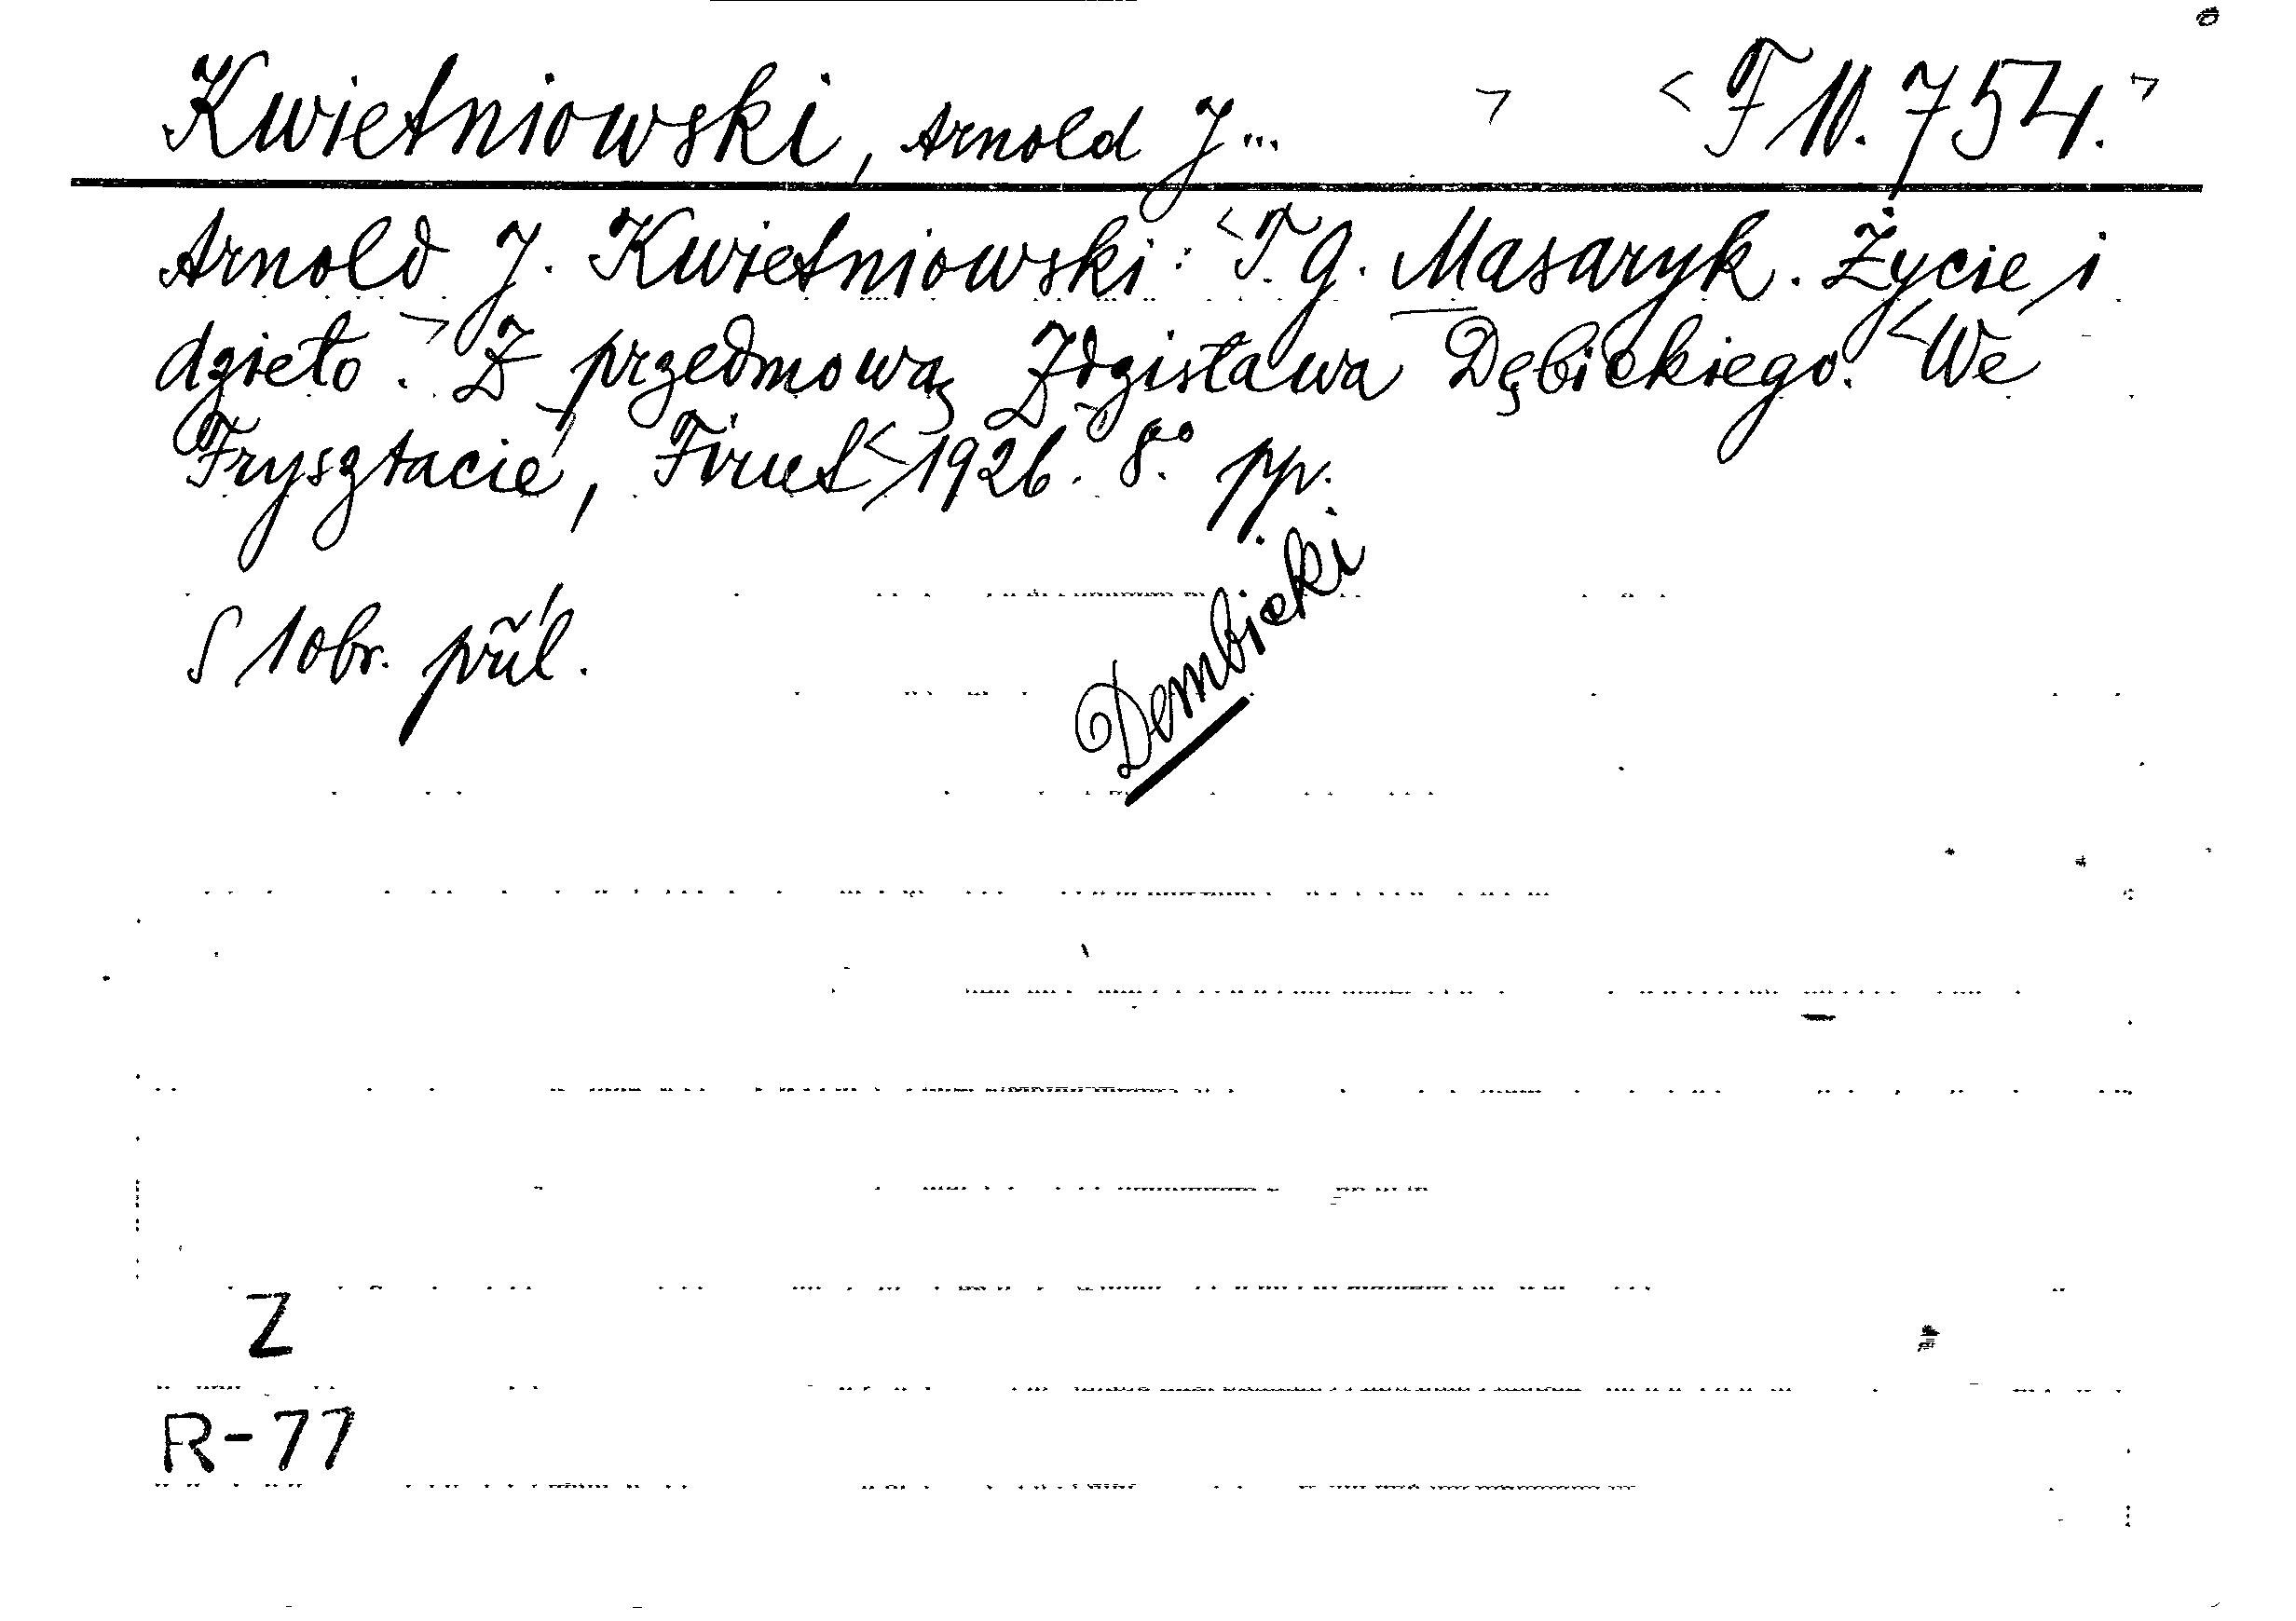 Kwietniowski, Arnold J... ¬ <F 10.754.¬
Arnold J. Kwietniowski: <T. G. Masaryk. Życie i
dzieło.¬ Z przedmową Zdzisława Dębickiego. <We
Frysztacie,¬ Firut <1926.¬ 8.° pp.
S 1 obr. příl.
Dembicki
Z
R-77